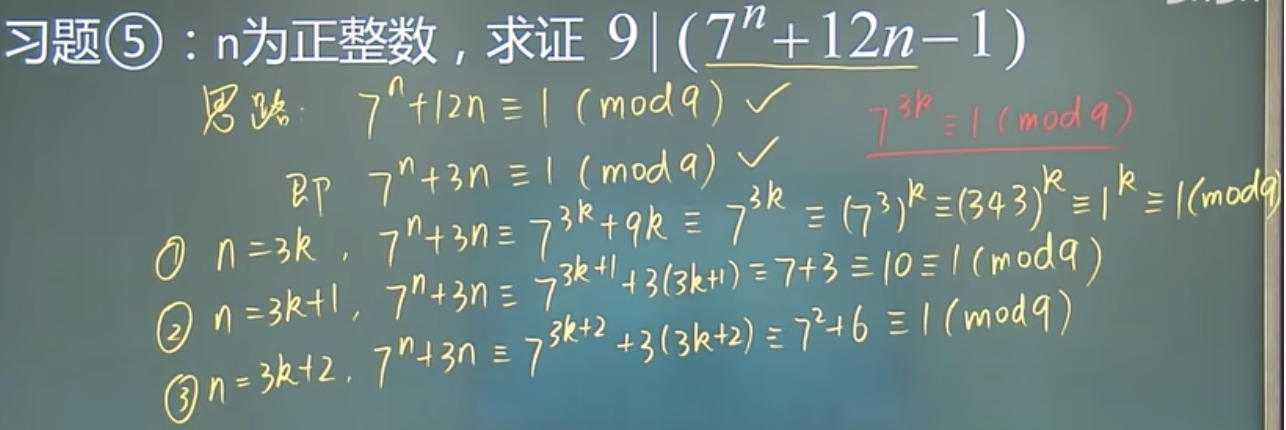 习题⑤：n为正整数，求证 9|(7ⁿ+12n−1)
思路: 7ⁿ+12n ≡ 1 (mod9) ✓
7³ᵏ ≡ 1 (mod9)
即 7ⁿ+3n ≡ 1 (mod9) ✓
① n=3k, 7ⁿ+3n ≡ 7³ᵏ+9k ≡ 7³ᵏ ≡ (7³)ᵏ ≡ (343)ᵏ ≡ 1ᵏ ≡ 1(mod9)
② n=3k+1, 7ⁿ+3n ≡ 7³ᵏ⁺¹+3(3k+1) ≡ 7+3 ≡ 10 ≡ 1(mod9)
③ n=3k+2, 7ⁿ+3n ≡ 7³ᵏ⁺²+3(3k+2) ≡ 7²+6 ≡ 1(mod9)